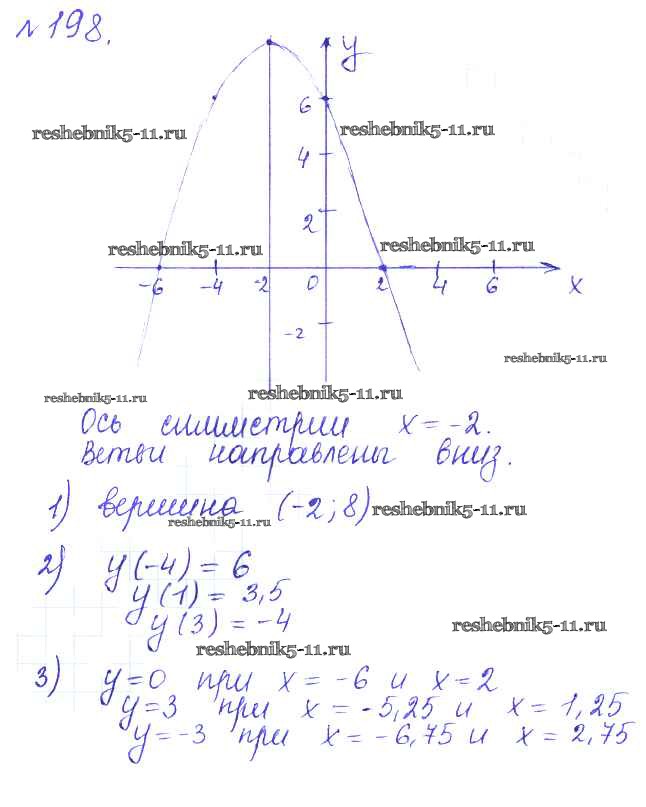 №198.
y
6
reshebnik5-11.ru reshebnik5-11.ru
4
2
reshebnik5-11.ru reshebnik5-11.ru
-6 -4 -2 0 2 4 6 x
-2
reshebnik5-11.ru
reshebnik5-11.ru reshebnik5-11.ru
Ось симметрии x = -2.
Ветви направлены вниз.
1) вершина (-2; 8) reshebnik5-11.ru
reshebnik5-11.ru
2) y(-4) = 6
y(1) = 3,5
y(3) = -4
reshebnik5-11.ru
reshebnik5-11.ru
3) y=0 при x = -6 и x=2
y=3 при x = -5,25 и x = 1,25
y=-3 при x = -6,75 и x = 2,75